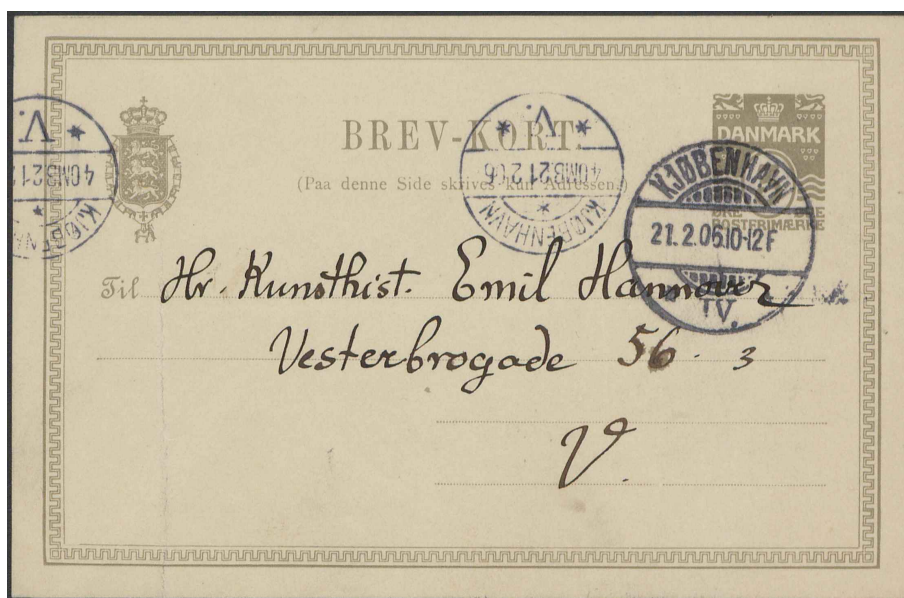 BREV-KORT.
(Paa denne Side skrives kun Adressen.)
DANMARK
POSTFRIMÆRKE
KJØBENHAVN
21.2.06.10-12F
IV.
KJØBENHAVN
40MB 21 2 06
V.
40MB 21
V.
Til Hr. Kunsthist. Emil Hannover
Vesterbrogade 56. 3
V.